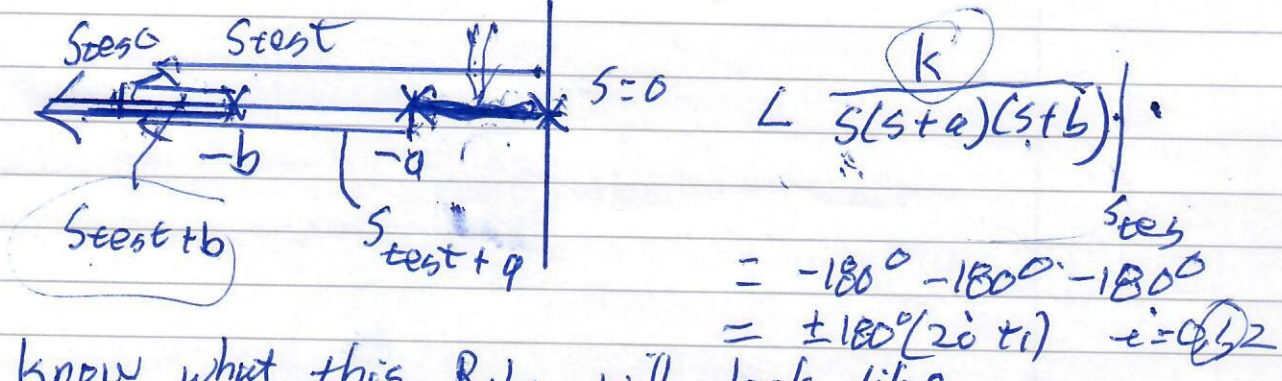 Stest Stest
S=0
∠ K / S(S+a)(S+b) | Stes
-b -a
Stest+b
Stest+a
= -180° -180° -180°
= ±180°(2i+1) i=0,1,2
know what this R.L. will look like